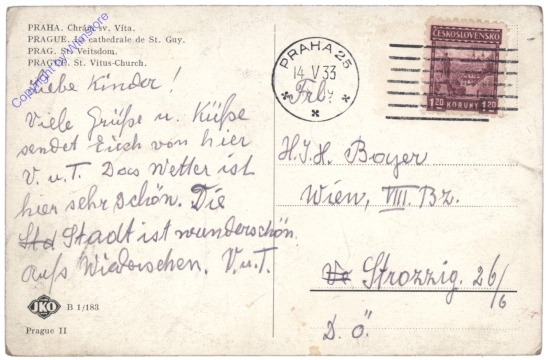 PRAHA. Chrám sv. Víta.
PRAGUE. La cathedrale de St. Guy.
PRAG. St. Veitsdom.
PRAGUE. St. Vitus-Church.
Copyright by Whinstore
Liebe Kinder!
Viele Grüße u. Küße
sendet Euch von hier
V. u. T. Das Wetter ist
hier sehr schön. Die
Std Stadt ist wunderschön.
aufs Wiedersehen. V. u. T.
JKO B 1/183
Prague II
PRAHA 25
14 V 33
ČESKOSLOVENSKO
1.20 KORUNY 1.20
H.J.H. Bayer
Wien, VIII. Bz.
Strozzig. 26/6
D. Ö.